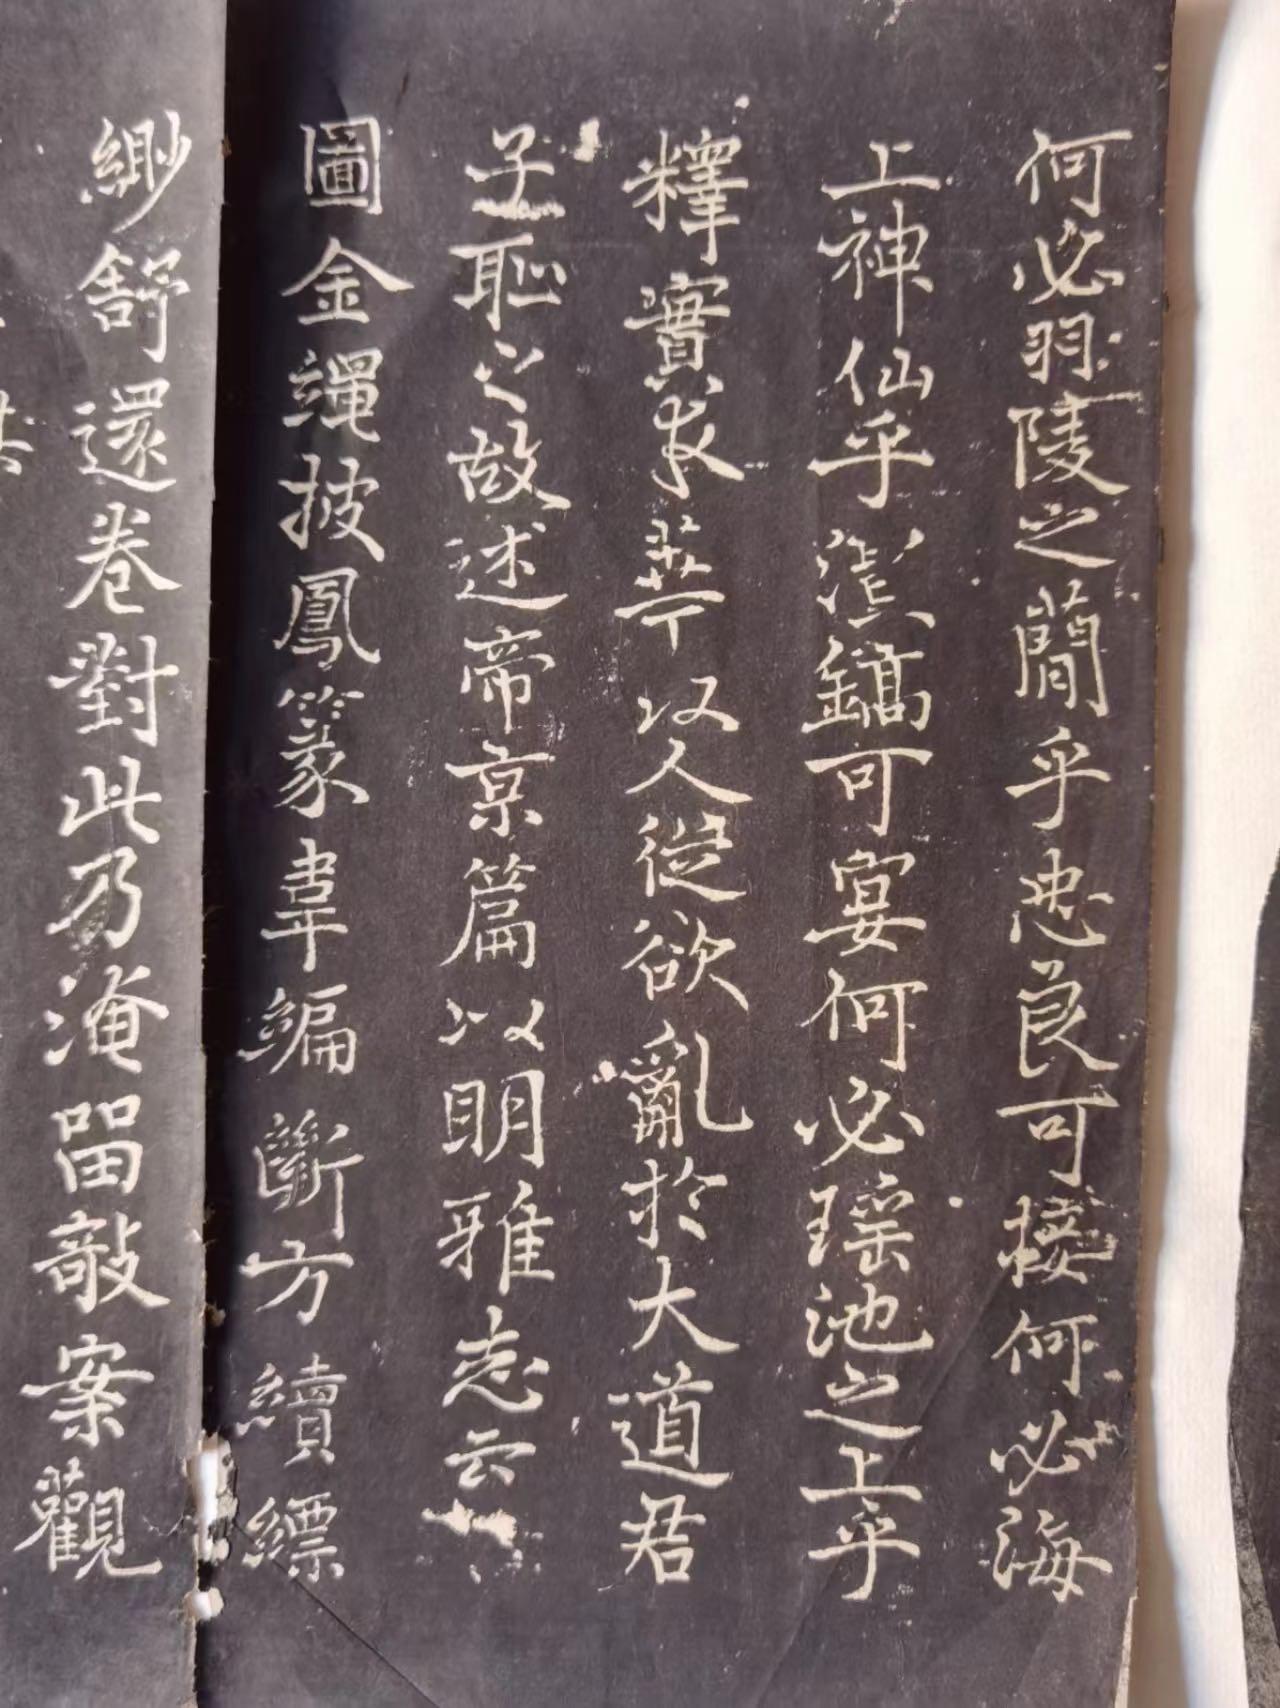 何必羽陵之蕳乎忠良可接何必海
上神仙乎灃鎬可宴何必瑶池之上乎
釋實求華以人從欲亂於大道君
子恥之故述帝京篇以明雅志云
圖金繩披鳳篆韋編斷方續縹
緲舒還卷對此乃淹留敧案觀